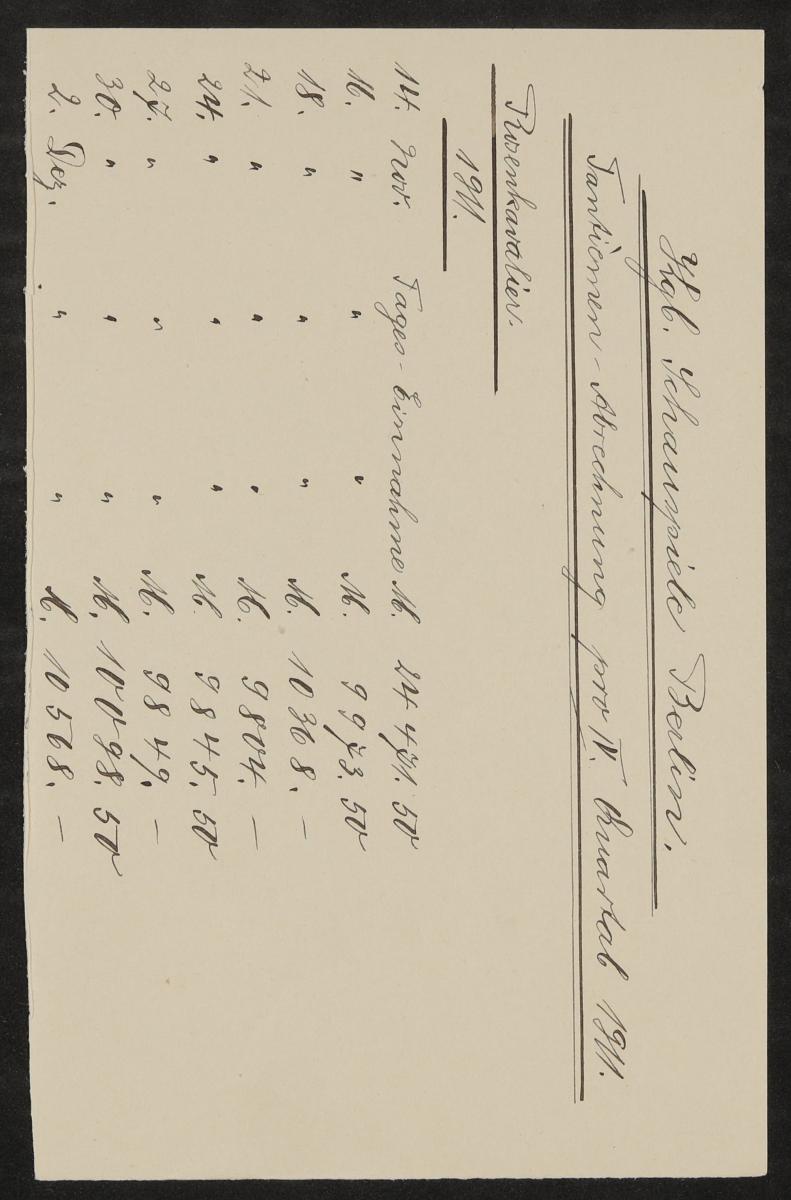 Kgl. Schauspiele Berlin.
Tantièmen-Abrechnung pro IV. Quartal 1911.
Rosenkavalier.
1911.
14. Nov. Tages-Einnahme M. 24 471. 50
16. " " " M. 9973. 50
18. " " " M. 10368. —
21. " " " M. 9804. —
24. " " " M. 9845. 50
27. " " " M. 9849. —
30. " " " M. 10098. 50
2. Dez. " " M. 10568. —